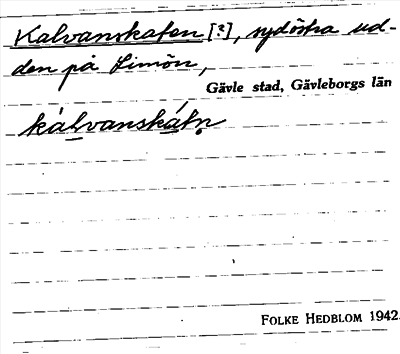 Kalvanskaten [?], sydöstra ud-
den på Limön,
Gävle stad, Gävleborgs län
kálvanskátn̥
FOLKE HEDBLOM 1942.